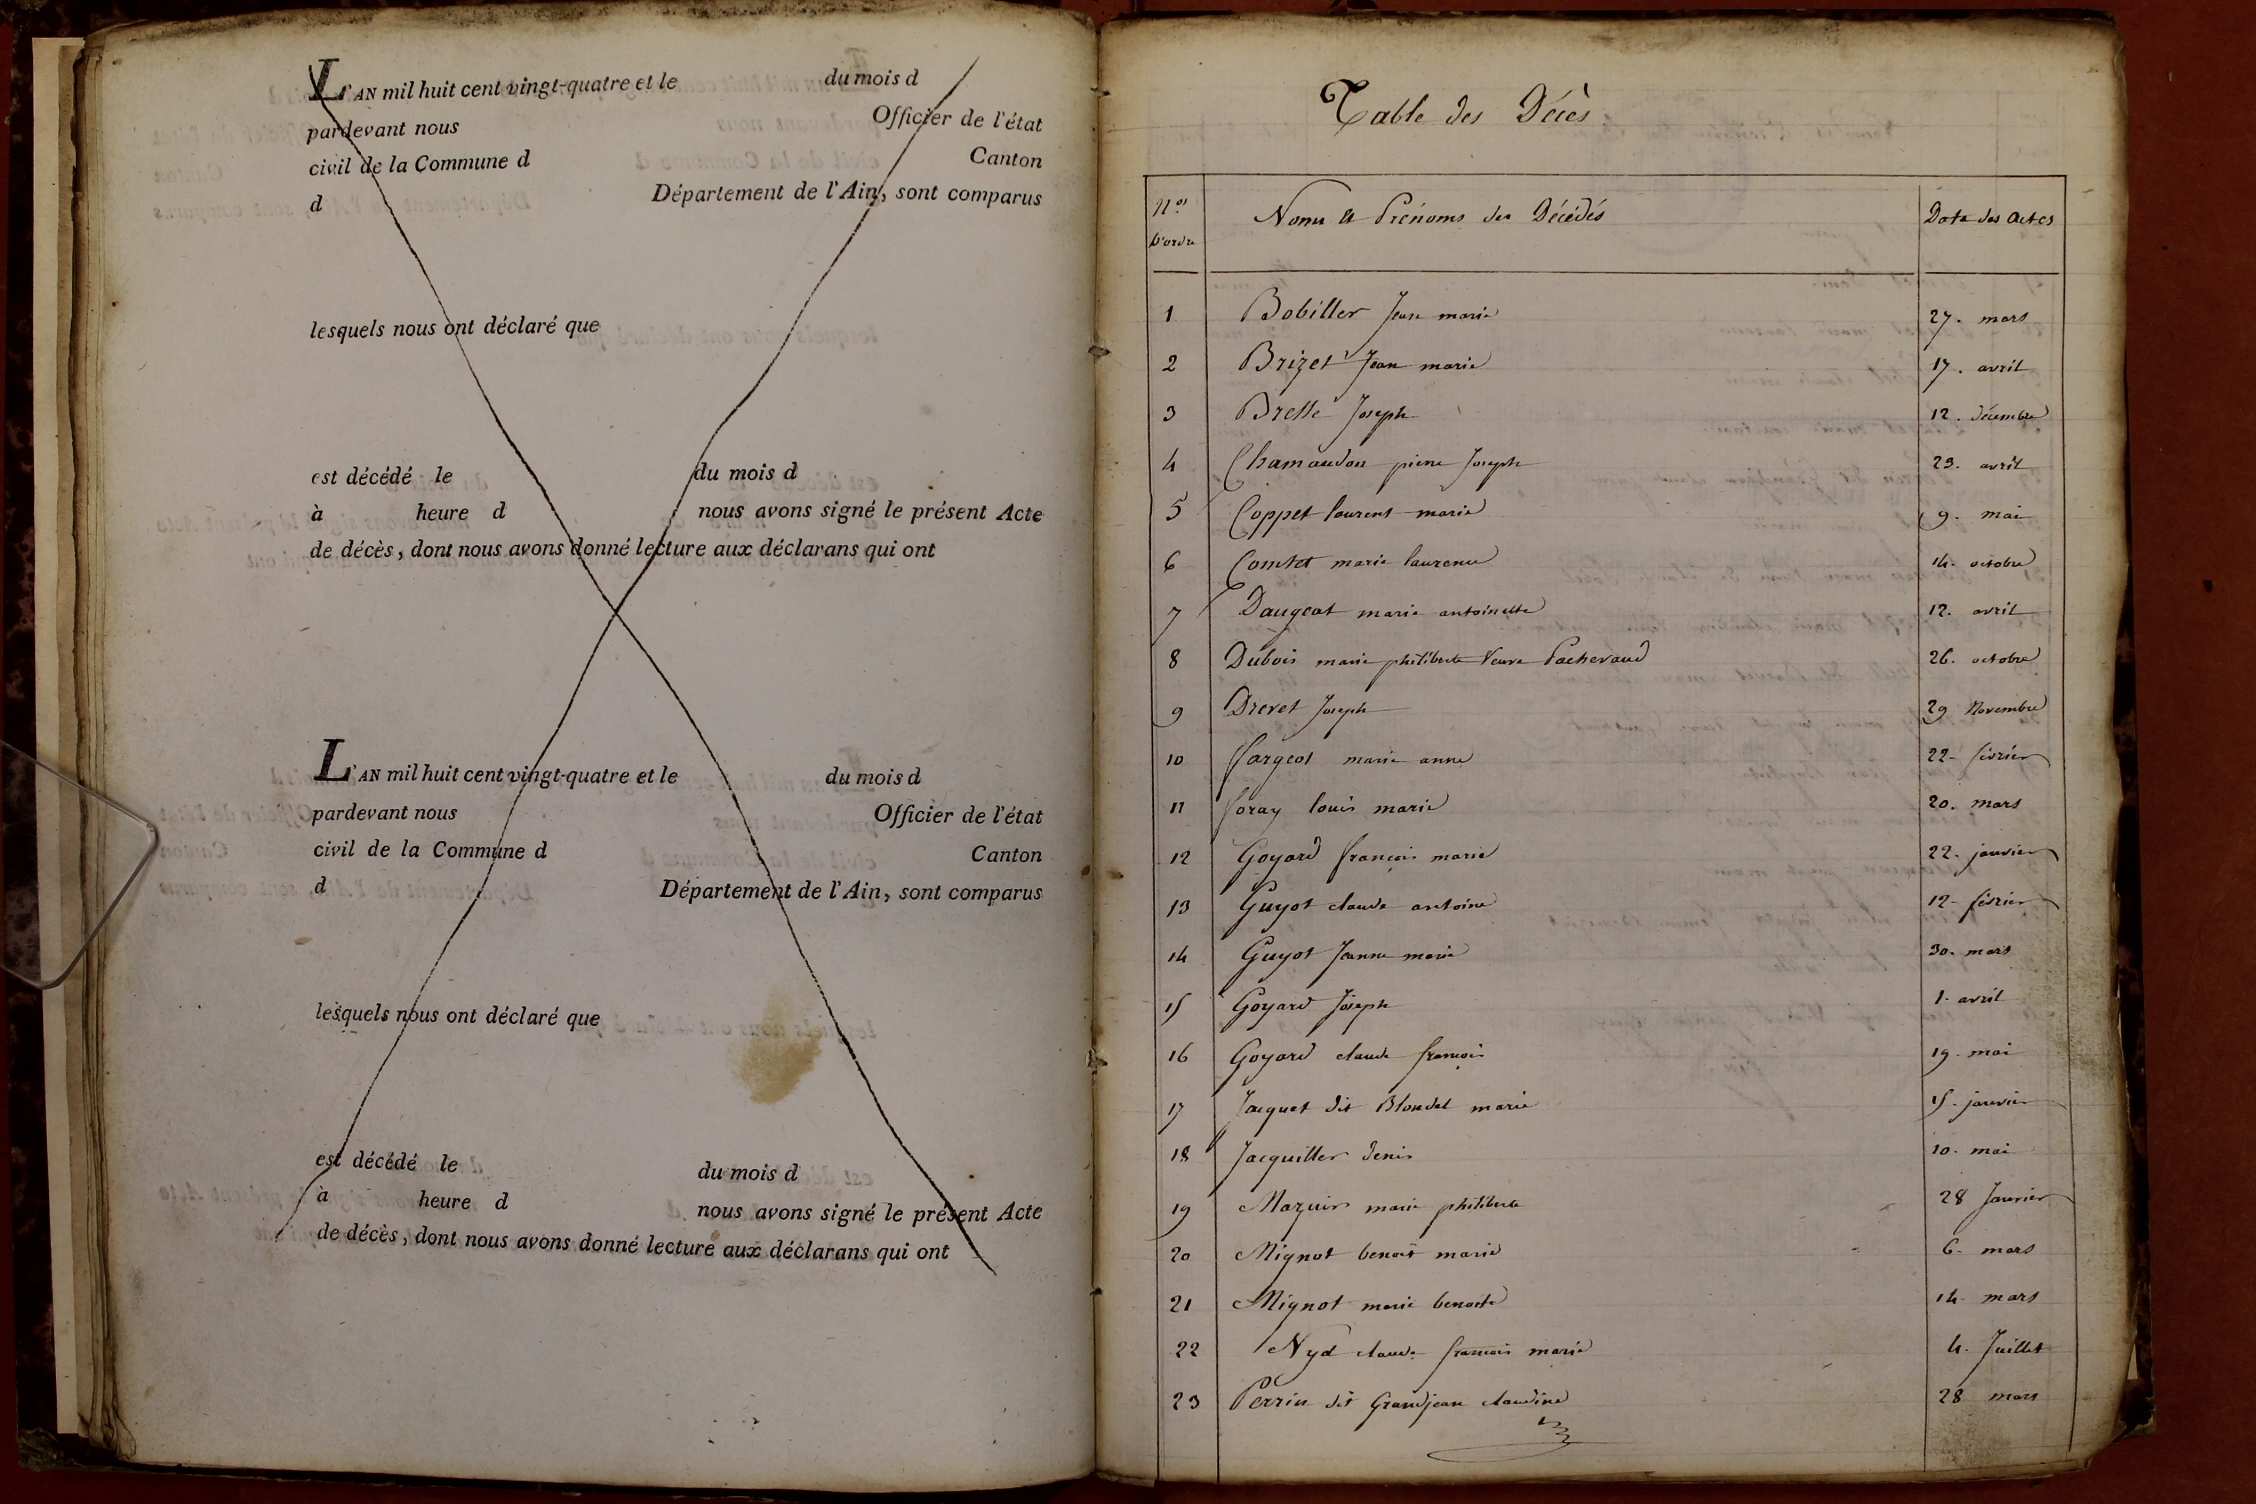 L'AN mil huit cent vingt-quatre et le du mois d
pardevant nous Officier de l'état
civil de la Commune d Canton
d Département de l'Ain, sont comparus
lesquels nous ont déclaré que
est décédé le du mois d
à heure d nous avons signé le présent Acte
de décès, dont nous avons donné lecture aux déclarans qui ont
L'AN mil huit cent vingt-quatre et le du mois d
pardevant nous Officier de l'état
civil de la Commune d Canton
d Département de l'Ain, sont comparus
lesquels nous ont déclaré que
est décédé le du mois d
à heure d nous avons signé le présent Acte
de décès, dont nous avons donné lecture aux déclarans qui ont
Table des Décès
Nos d'ordre Noms et Prénoms des Décédés Date des actes
1 Bobiller Jean marie 27. mars
2 Brizet Jean marie 17. avril
3 Joseph 12. décembre
4 pierre Joseph 23. avril
5 Coppet laurent marie 9. mai
6 Comtet marie laurence 14. octobre
7 Daugeat marie antoinette 12. avril
8 Dubois marie philiberte Veuve Pachevaud 26. octobre
9 Drevet Joseph 29 Novembre
10 fargeot marie anne 22. février
11 foray louis marie 20. mars
12 Goyard françois marie 22. janvier
13 Guyot claude antoine 12. février
14 Guyot Jeanne marie 30. mars
15 Goyard Joseph 1. avril
16 Goyard claude françois 19. mai
17 Jacquet dit Blondel marie 15. janvier
18 Jacquiller denis 10. mai
19 Mazuir marie philiberte 28 Janvier
20 Mignot benoit marie 6. mars
21 Mignot marie benoite 14. mars
22 Nyd claude françois marie 4. Juillet
23 Perrin dit Grandjean claudine 28 mars